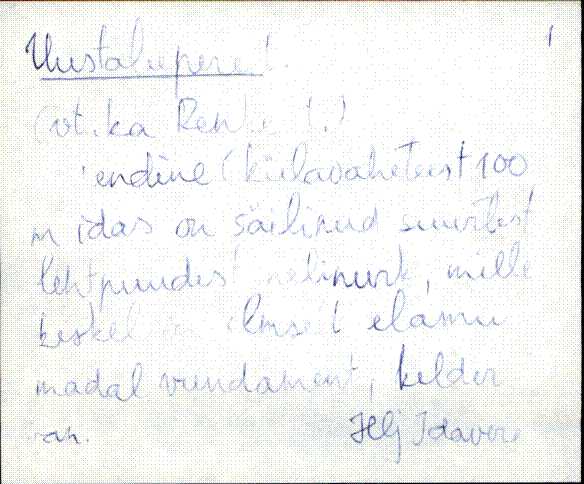 Uustalupere t. 1
(vt. ka t.)
endine (külavaheteest 100
m idas on säilinud suurtest
lehtpuudest nelinurk, mille
keskel on ilmselt elamu
madal vundament, kelder
Hlj Idavere